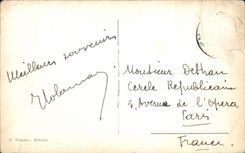 Meilleurs souvenirs
Monsieur Dethan
Cercle Republicain
5, Avenue de l'Opera
Paris
France